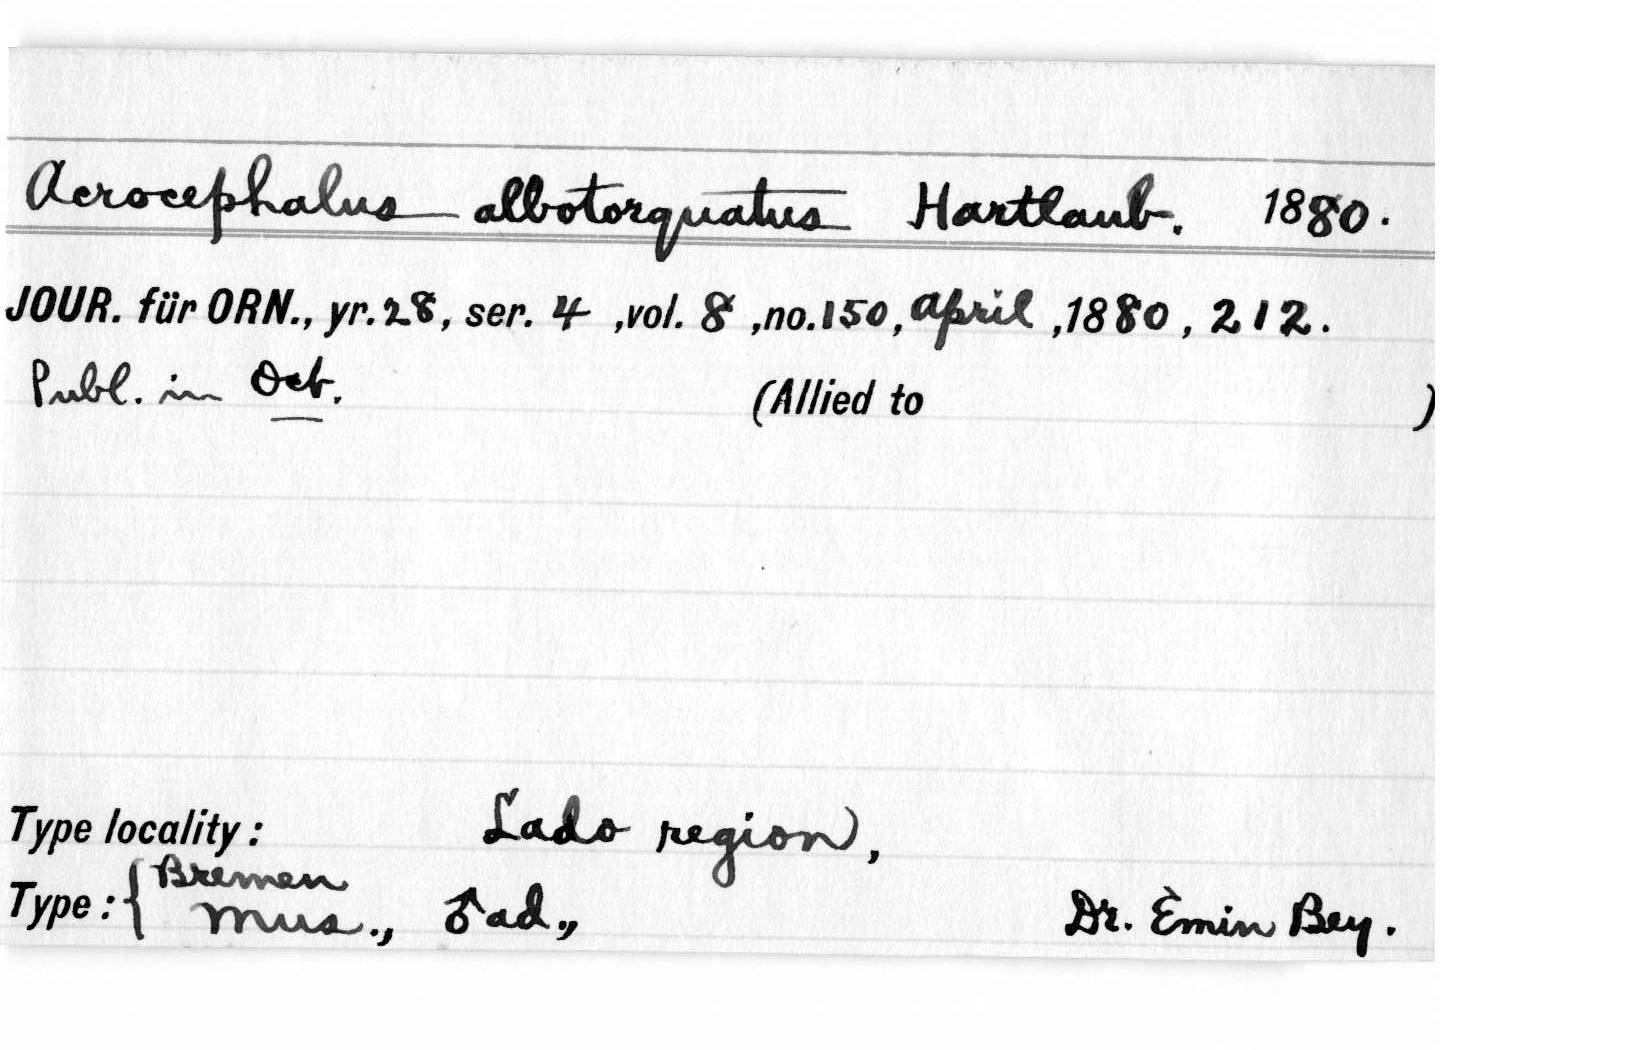 Acrocephalus albotorquatus Hartlaub. 1880.
JOUR. für ORN., yr. 28, ser. 4 ,vol. 8 ,no. 150, April ,1880 , 212.
Publ. in Oct. (Allied to )
Type locality: Lado region,
Type: { Bremen
Mus., ♂ ad., Dr. Emin Bey.